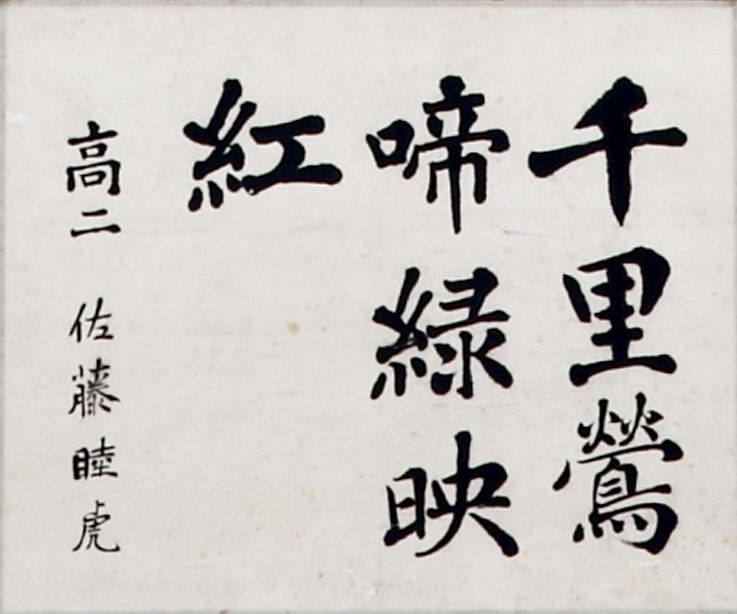 千里鶯
啼緑映
紅
高二 佐藤睦虎